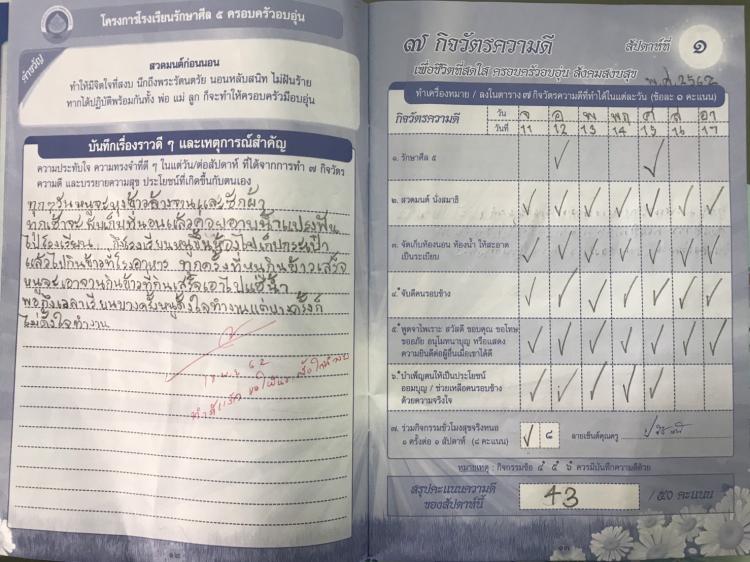 โครงการโรงเรียนรักษาศีล ๕ ครอบครัวอบอุ่น
คำขวัญ
สวดมนต์ก่อนนอน
ทำให้มีจิตใจที่สงบ นึกถึงพระรัตนตรัย นอนหลับสนิท ไม่ฝันร้าย
หากได้ปฏิบัติพร้อมกันทั้ง พ่อ แม่ ลูก ก็จะทำให้ครอบครัวมีอบอุ่น
บันทึกเรื่องราวดี ๆ และเหตุการณ์สำคัญ
ความประทับใจ ความทรงจำที่ดี ๆ ในแต่วัน/ต่อสัปดาห์ ที่ได้จากการทำ ๗ กิจวัตร
ความดี และบรรยายความสุข ประโยชน์ที่เกิดขึ้นกับตนเอง
ทุกๆวันหนูจะหุงข้าวล้างจานและซักผ้า
ทุกเช้าจะพับเก็บที่นอนแล้วค่อยอาบน้ำแปรงฟัน
ไปโรงเรียน ถึงโรงเรียนหนูขึ้นห้องไปเก็บกระเป๋า
แล้วไปกินข้าวที่โรงอาหาร ทุกครั้งที่หนูกินข้าวเสร็จ
หนูจะเอาจานกินข้าวที่กินเสร็จเอาไปแช่น้ำ
พอถึงเวลาเรียนบางครั้งหนูตั้งใจทำงานแต่บางครั้งก็
ไม่ตั้งใจทำงาน
๑๒
๗ กิจวัตรความดี
สัปดาห์ที่ ๑
เพื่อชีวิตที่สดใส ครอบครัวอบอุ่น สังคมสงบสุข
ทำเครื่องหมาย / ลงในตาราง ๗ กิจวัตรความดีที่ทำได้ในแต่ละวัน (ข้อละ ๑ คะแนน)
กิจวัตรความดี วัน จ อ พ พฤ ศ ส อา
วันที่ 11 12 13 14 15 16 17
๑. รักษาศีล ๕
๒. สวดมนต์ นั่งสมาธิ
๓. จัดเก็บห้องนอน ห้องน้ำ ให้สะอาด
เป็นระเบียบ
๔. จับดีคนรอบข้าง
๕. พูดจาไพเราะ สวัสดี ขอบคุณ ขอโทษ
ขออภัย อนุโมทนาบุญ หรือแสดง
ความยินดีต่อผู้อื่นเมื่อเขาได้ดี
๖. บำเพ็ญตนให้เป็นประโยชน์
ออมบุญ / ช่วยเหลือคนรอบข้าง
ด้วยความจริงใจ
๗. ร่วมกิจกรรมชั่วโมงสุขจริงหนอ
๑ ครั้งต่อ ๑ สัปดาห์ (๘ คะแนน) ๘ ลายเซ็นต์คุณครู
หมายเหตุ : กิจกรรมข้อ ๔ ๕ ๖ ควรมีบันทึกความดีด้วย
สรุปคะแนนความดี
ของสัปดาห์นี้ 43 /๕๐ คะแนน
๑๓